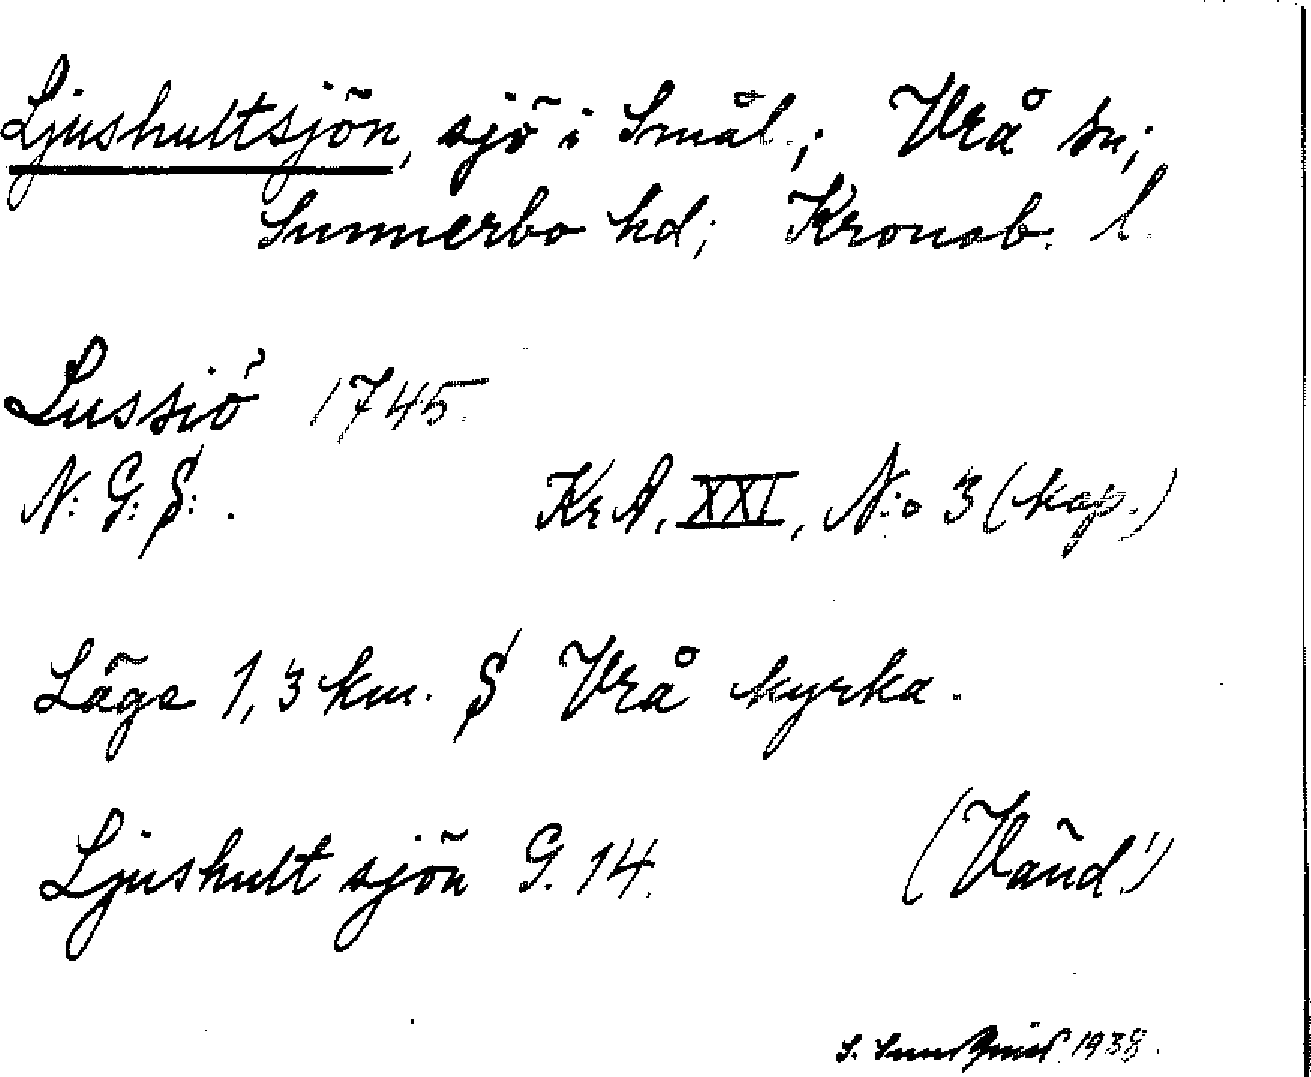 Ljushultsjön, sjö i Smål.; Vrå sn;
Sunnerbo hd; Kronob. l.
Lussiö 1745.
N: G: S: .
KrA. XXI, N:o 3 (kop.)
Läge 1,3 km. S Vrå kyrka.
Ljushult sjön G. 14.
(Vänd!)
S. 1938.